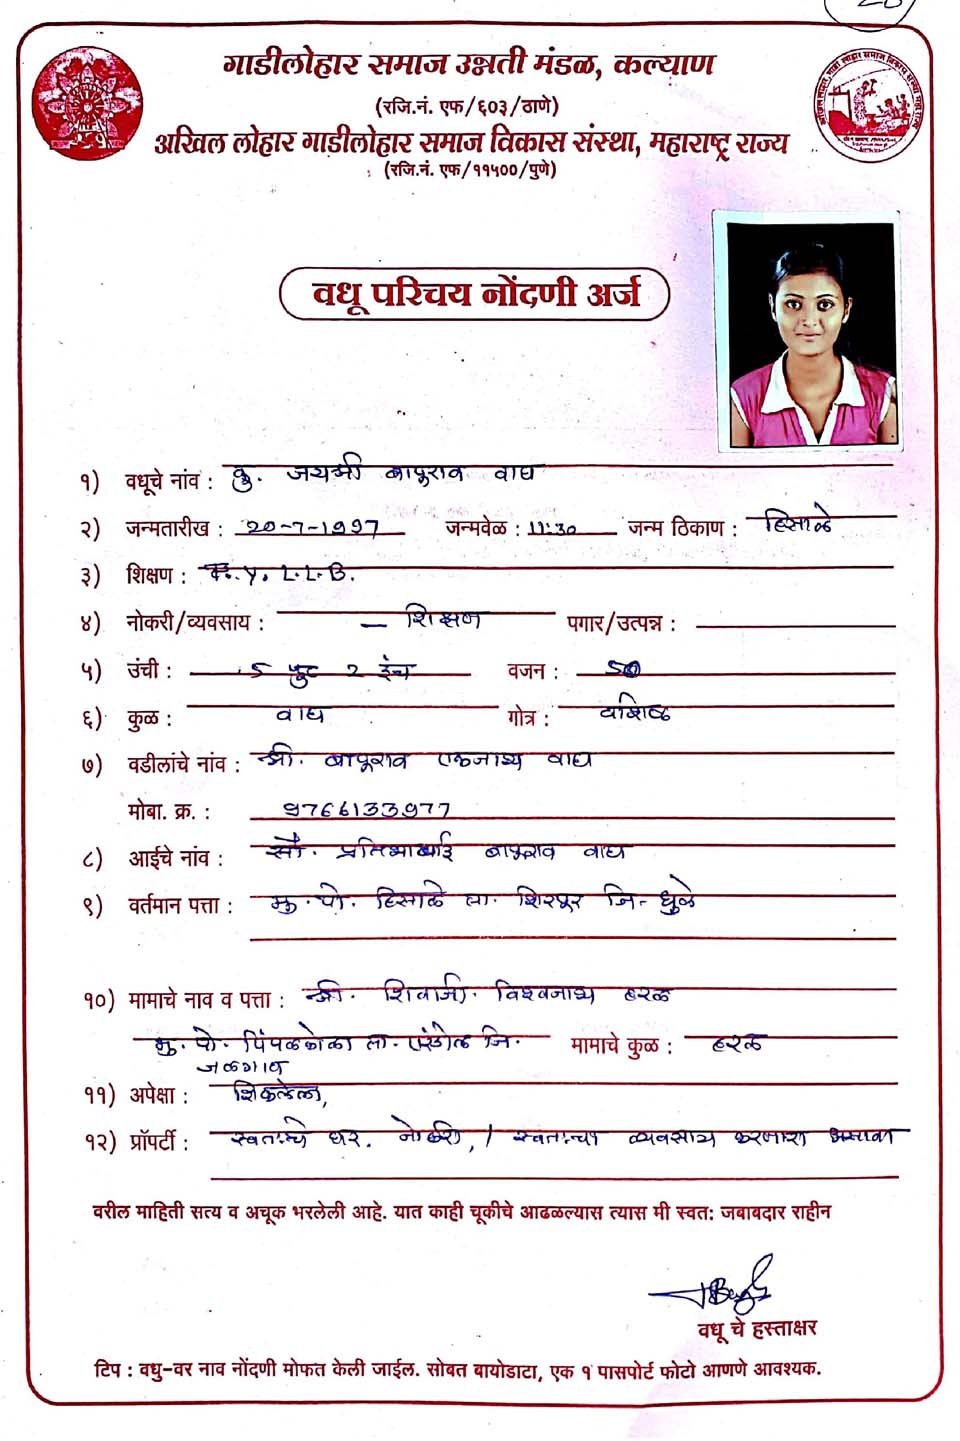 गाडीलोहार समाज उन्नती मंडळ, कल्याण
(रजि.नं. एफ/६०३/ठाणे)
अखिल लोहार गाडीलोहार समाज विकास संस्था, महाराष्ट्र राज्य
(रजि.नं. एफ/११५००/पुणे)
वधू परिचय नोंदणी अर्ज
१) वधूचे नांव : कु. जयश्री बापूराव वाघ
२) जन्मतारीख : 20-7-1997 जन्मवेळ : 11:30 जन्म ठिकाण : हिसाळे
३) शिक्षण : F. Y. L.L.B.
४) नोकरी/व्यवसाय : – शिक्षण पगार/उत्पन्न :
५) उंची : 5 फुट 2 इंच वजन : 50
६) कुळ : वाघ गोत्र : वशिष्ठ
७) वडीलांचे नांव : श्री. बापूराव एकनाथ वाघ
मोबा. क्र. : 9766133977
८) आईचे नांव : सौ. प्रतिभाबाई बापूराव वाघ
९) वर्तमान पत्ता : मु. पो. हिसाळे ता. शिरपूर जि- धुळे
१०) मामाचे नाव व पत्ता : श्री. शिवाजी. विश्वनाथ हरळ
मु. पो. पिंपळकोठा ता. एरंडोल जि. मामाचे कुळ : हरळ
जळगाव
११) अपेक्षा : शिकलेला,
१२) प्रॉपर्टी : स्वतःचे घर. नोकरी, / स्वतःचा व्यवसाय करणारा असावा
वरील माहिती सत्य व अचूक भरलेली आहे. यात काही चूकीचे आढळल्यास त्यास मी स्वत: जबाबदार राहीन
वधू चे हस्ताक्षर
टिप : वधु-वर नाव नोंदणी मोफत केली जाईल. सोबत बायोडाटा, एक १ पासपोर्ट फोटो आणणे आवश्यक.